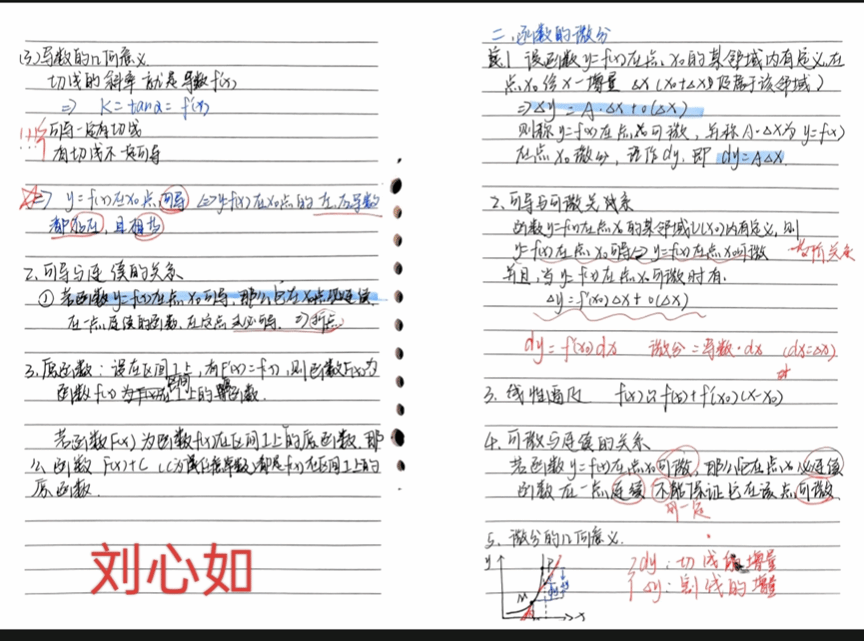 (3) 导数的几何意义
切线的斜率就是导数f'(x)
⇒ K=tanα=f'(x)
可导一定有切线
有切线不一定可导
⇒ y=f(x)在x₀点可导⇔y=f(x)在x₀点的左、右导数
都存在，且相等
2.可导与连续的关系
① 若函数y=f(x)在点x₀可导，那么它在x₀点必连续
在一点连续的函数，在该点未必可导 ⇒折点
3.原函数：设在区间I上，有F'(x)=f(x)，则函数F(x)为
函数f(x)为 区间I上的原函数.
若函数F(x)为函数f(x)在区间I上的原函数，那
么函数F(x)+C (C为任意常数)都是f(x)在区间I上的
原函数.
刘心如
二.函数的微分
1 设函数y=f(x)在点x₀的某邻域内有定义,在
点x₀给x一增量 Δx(x₀+Δx仍属于该邻域)
⇒Δy=A·Δx+o(Δx)
则称y=f(x)在点x₀可微，并称A·Δx为y=f(x)
在点x₀微分，记作dy，即 dy=AΔx.
2.可导与可微关系
函数y=f(x)在点x₀的某邻域U(x₀)内有定义,则
y=f(x)在点x₀可导⇔y=f(x)在点x₀可微 关系
并且,当y=f(x)在点x₀可微时有.
Δy=f'(x₀)Δx+o(Δx)
dy=f'(x₀)dx 微分=导数·dx (dx=Δx)
3.线性逼近 f(x)≈f(x₀)+f'(x₀)(x-x₀)
4.可微与连续的关系
若函数y=f(x)在点x₀可微,那么它在点x₀必连续
函数在一点连续 不能保证它在该点可微
不一定
5.微分的几何意义.
y
dy:切线的增量
P
Δy:割线的增量
M
x